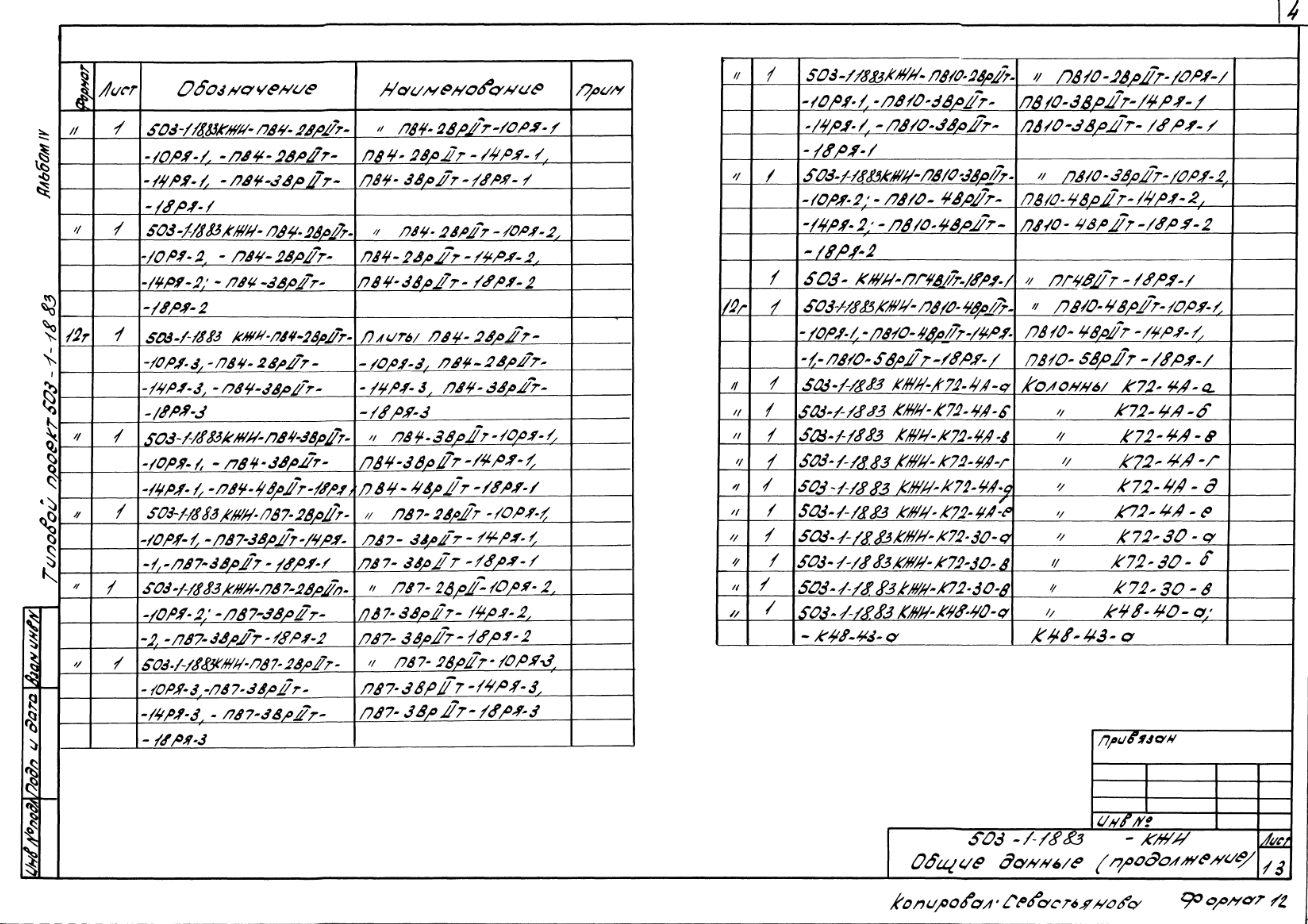 4
Альбом IV
Типовой проект 503-1-18 83
Взам инв №
Подп и дата
Инв № подл
Формат Лист Обозначение Наименование Прим
" 1 503-1-1883КЖИ-ПВ4-2ВрIIт- " ПВ4-2ВрIIт-10РЯ-1
-10РЯ-1, -ПВ4-2ВрIIт- ПВ4-2ВрIIт-14РЯ-1,
-14РЯ-1, -ПВ4-3ВрIIт- ПВ4-3ВрIIт-18РЯ-1
-18РЯ-1
" 1 503-1-1883 КЖИ-ПВ4-2ВрIIт- " ПВ4-2ВрIIт-10РЯ-2,
-10РЯ-2, -ПВ4-2ВрIIт- ПВ4-2ВрIIт-14РЯ-2,
-14РЯ-2; -ПВ4-3ВрIIт- ПВ4-3ВрIIт-18РЯ-2
-18РЯ-2
12г 1 503-1-1883 КЖИ-ПВ4-2ВрIIт- Плиты ПВ4-2ВрIIт-
-10РЯ-3, -ПВ4-2ВрIIт- -10РЯ-3, ПВ4-2ВрIIт-
-14РЯ-3, -ПВ4-3ВрIIт- -14РЯ-3, ПВ4-3ВрIIт-
-18РЯ-3 -18РЯ-3
" 1 503-1-1883КЖИ-ПВ4-3ВрIIт- " ПВ4-3ВрIIт-10РЯ-1,
-10РЯ-1, -ПВ4-3ВрIIт- ПВ4-3ВрIIт-14РЯ-1,
-14РЯ-1, -ПВ4-4ВрIIт-18РЯ-1 ПВ4-4ВрIIт-18РЯ-1
" 1 503-1-1883 КЖИ-ПВ7-2ВрIIт- " ПВ7-2ВрIIт-10РЯ-1,
-10РЯ-1, -ПВ7-3ВрIIт-14РЯ- ПВ7-3ВрIIт-14РЯ-1,
-1, -ПВ7-3ВрIIт-18РЯ-1 ПВ7-3ВрIIт-18РЯ-1
" 1 503-1-1883 КЖИ-ПВ7-2ВрIIп- " ПВ7-2ВрII-10РЯ-2,
-10РЯ-2; -ПВ7-3ВрIIт- ПВ7-3ВрIIт-14РЯ-2,
-2, -ПВ7-3ВрIIт-18РЯ-2 ПВ7-3ВрIIт-18РЯ-2
" 1 503-1-1883КЖИ-ПВ7-2ВрIIт- " ПВ7-2ВрIIт-10РЯ-3,
-10РЯ-3, -ПВ7-3ВрIIт- ПВ7-3ВРIIт-14РЯ-3,
-14РЯ-3, -ПВ7-3ВрIIт- ПВ7-3ВрIIт-18РЯ-3
-18РЯ-3
" 1 503-1-1883КЖИ-ПВ10-2ВрIIт- " ПВ10-2ВрIIт-10РЯ-1
-10РЯ-1, -ПВ10-3ВрIIт- ПВ10-3ВрIIт-14РЯ-1
-14РЯ-1, -ПВ10-3ВрIIт- ПВ10-3ВрIIт-18РЯ-1
-18РЯ-1
" 1 503-1-1883КЖИ-ПВ10-3ВрIIт- " ПВ10-3ВрIIт-10РЯ-2,
-10РЯ-2; -ПВ10-4ВрIIт- ПВ10-4ВрIIт-14РЯ-2,
-14РЯ-2; -ПВ10-4ВрIIт- ПВ10-4ВрIIт-18РЯ-2
-18РЯ-2
1 503- КЖИ-ПГ4ВIIт-18РЯ-1 " ПГ4ВIIт-18РЯ-1
12г 1 503-1-1883КЖИ-ПВ10-4ВрIIт- " ПВ10-4ВрIIт-10РЯ-1,
-10РЯ-1, -ПВ10-4ВрIIт-14РЯ- ПВ10-4ВрIIт-14РЯ-1,
-1, -ПВ10-5ВрIIт-18РЯ-1 ПВ10-5ВрIIт-18РЯ-1
" 1 503-1-1883 КЖИ-К72-4А-а Колонны К72-4А-а
" 1 503-1-1883 КЖИ-К72-4А-б " К72-4А-б
" 1 503-1-18.83 КЖИ-К72-4А-в " К72-4А-в
" 1 503-1-18.83 КЖИ-К72-4А-г " К72-4А-г
" 1 503-1-18 83 КЖИ-К72-4А-д " К72-4А-д
" 1 503-1-18.83 КЖИ-К72-4А-е " К72-4А-е
" 1 503-1-18.83КЖИ-К72-30-а " К72-30-а
" 1 503-1-18.83 КЖИ-К72-30-в " К72-30-б
" 1 503-1-18.83КЖИ-К72-30-в " К72-30-в
" 1 503-1-18.83 КЖИ-К48-40-а " К48-40-а;
-К48-43-а К48-43-а
Привязан
Инв №
503-1-18 83 - КЖИ
Общие данные (продолжение)
Лист
13
Копировал: Севастьянова Формат 12